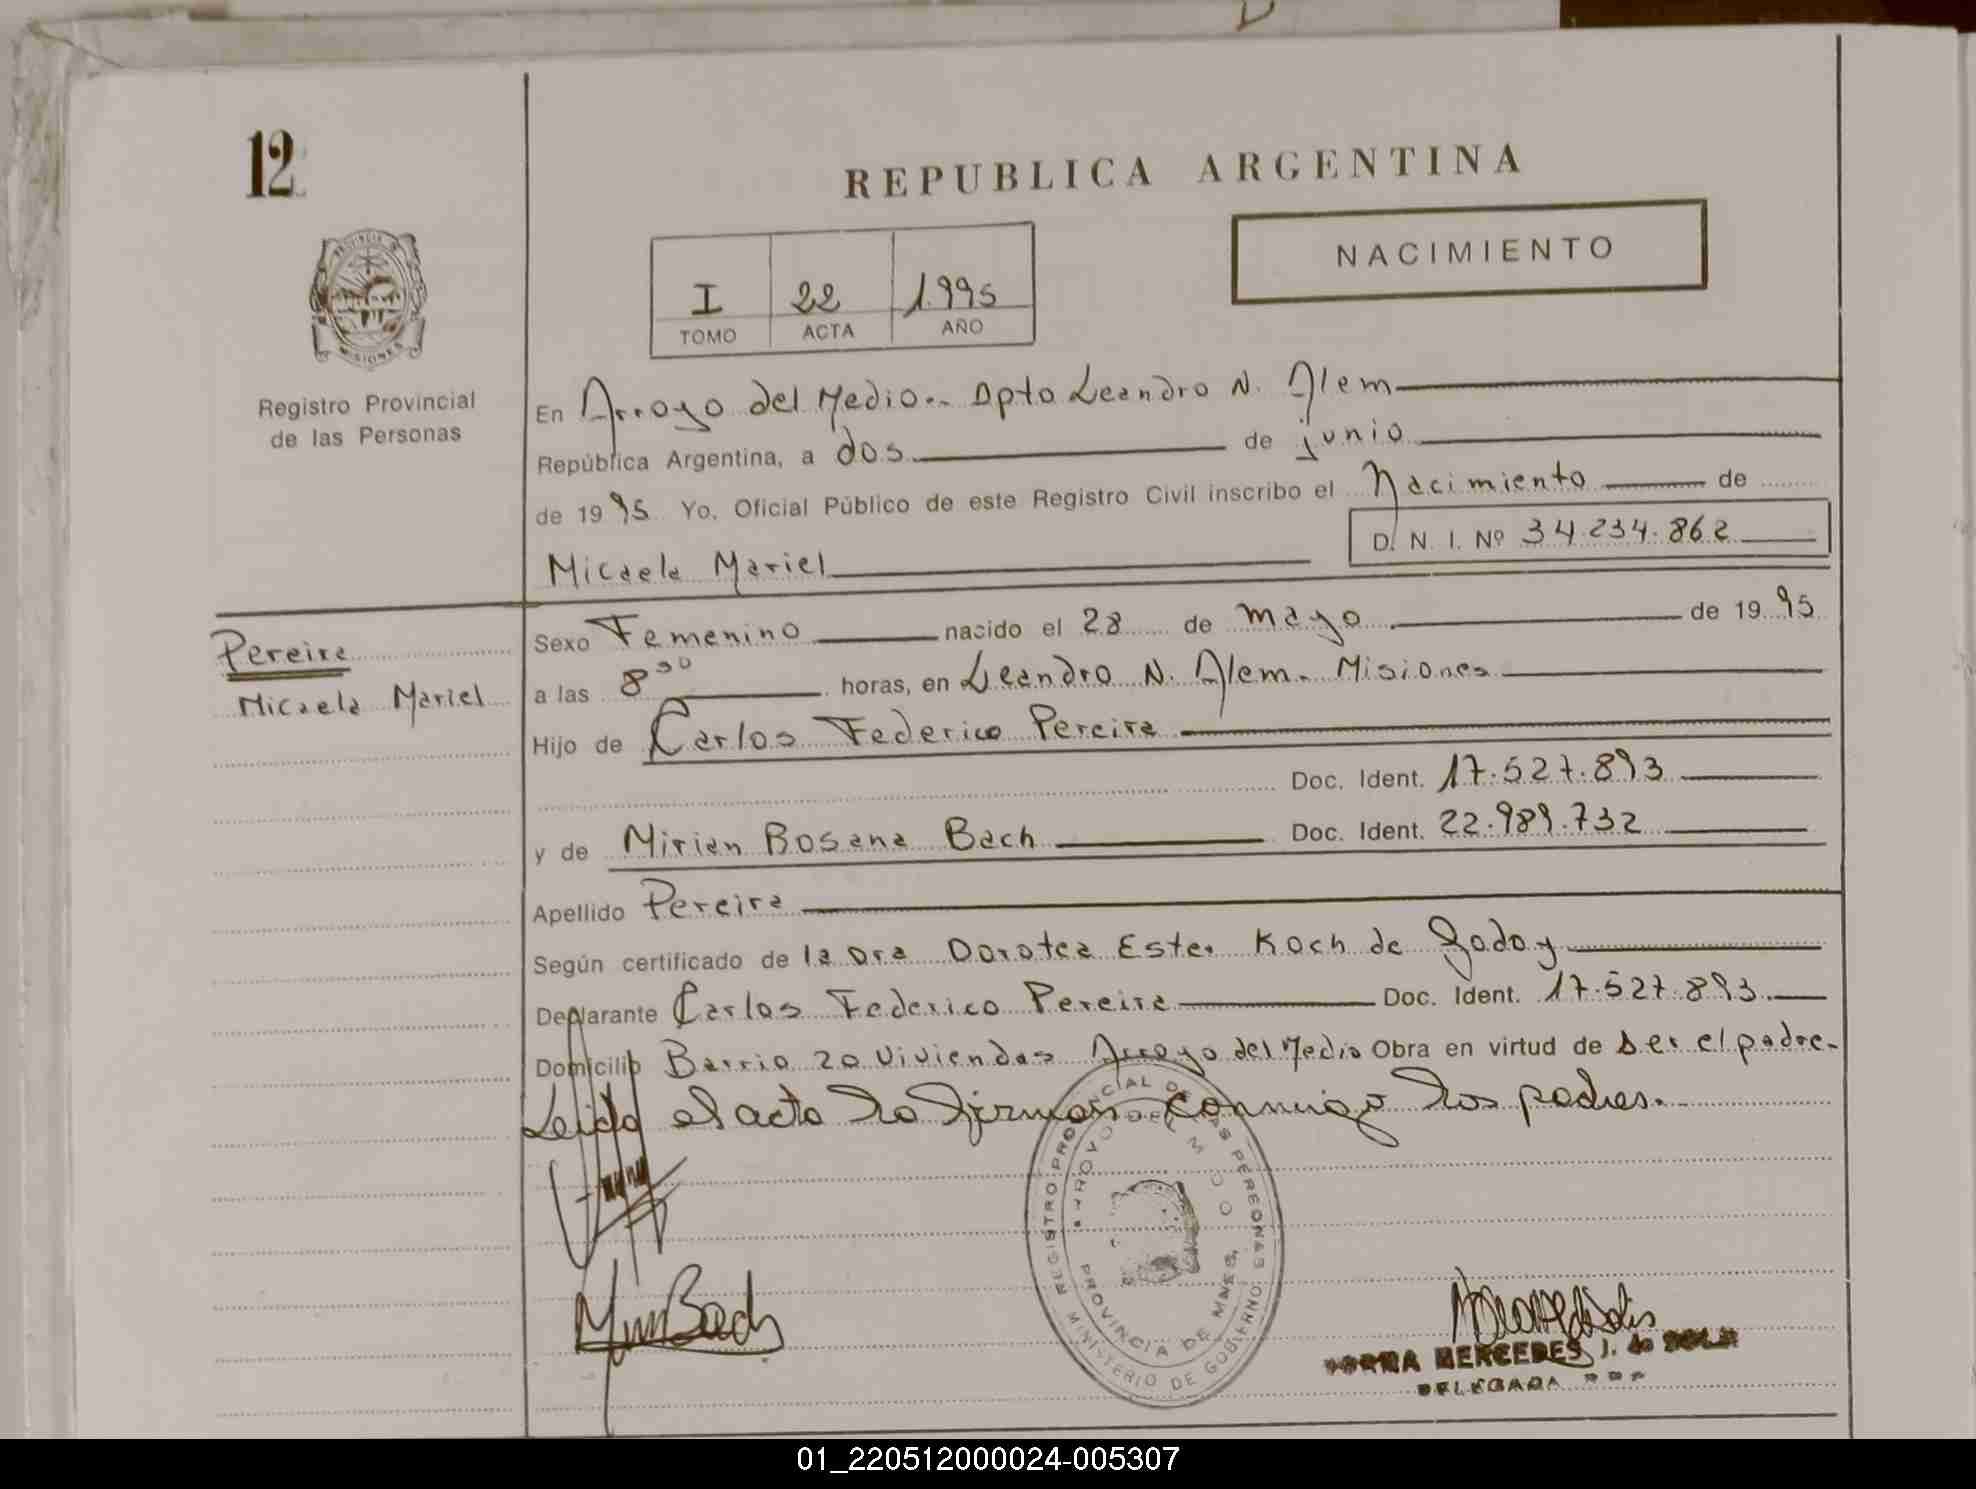 12
REPUBLICA ARGENTINA
NACIMIENTO
I 22 1.995
TOMO ACTA AÑO
PROVINCIA DE
MISIONES
Registro Provincial
de las Personas
En Arroyo del Medio.- Dpto Leandro N. Alem
República Argentina, a dos de junio
de 1995 Yo, Oficial Público de este Registro Civil inscribo el Nacimiento de
D. N. I. Nº 34.234.862
Micaela Mariel
Pereira
Micaela Mariel
Sexo Femenino nacido el 28 de mayo de 1995
a las 8 30 horas, en Leandro N. Alem. Misiones
Hijo de Carlos Federico Pereira
Doc. Ident. 17.527.893
y de Mirian Rosana Bach Doc. Ident. 22.989.732
Apellido Pereira
Según certificado de la Dra Dorotea Ester Koch de Godoy
Declarante Carlos Federico Pereira Doc. Ident. 17.527.893
Domicilio Barrio 20 Viviendas Arroyo del Medio Obra en virtud de ser el padre-
Leido el acta la firman conmigo los padres.
REGISTRO PROVINCIAL DE LAS PERSONAS
ARROYO DEL M
PROVINCIA DE MNES.
MINISTERIO DE GOBIERNO
Bach
MERCEDES J. de
DELEGADA
01_220512000024-005307